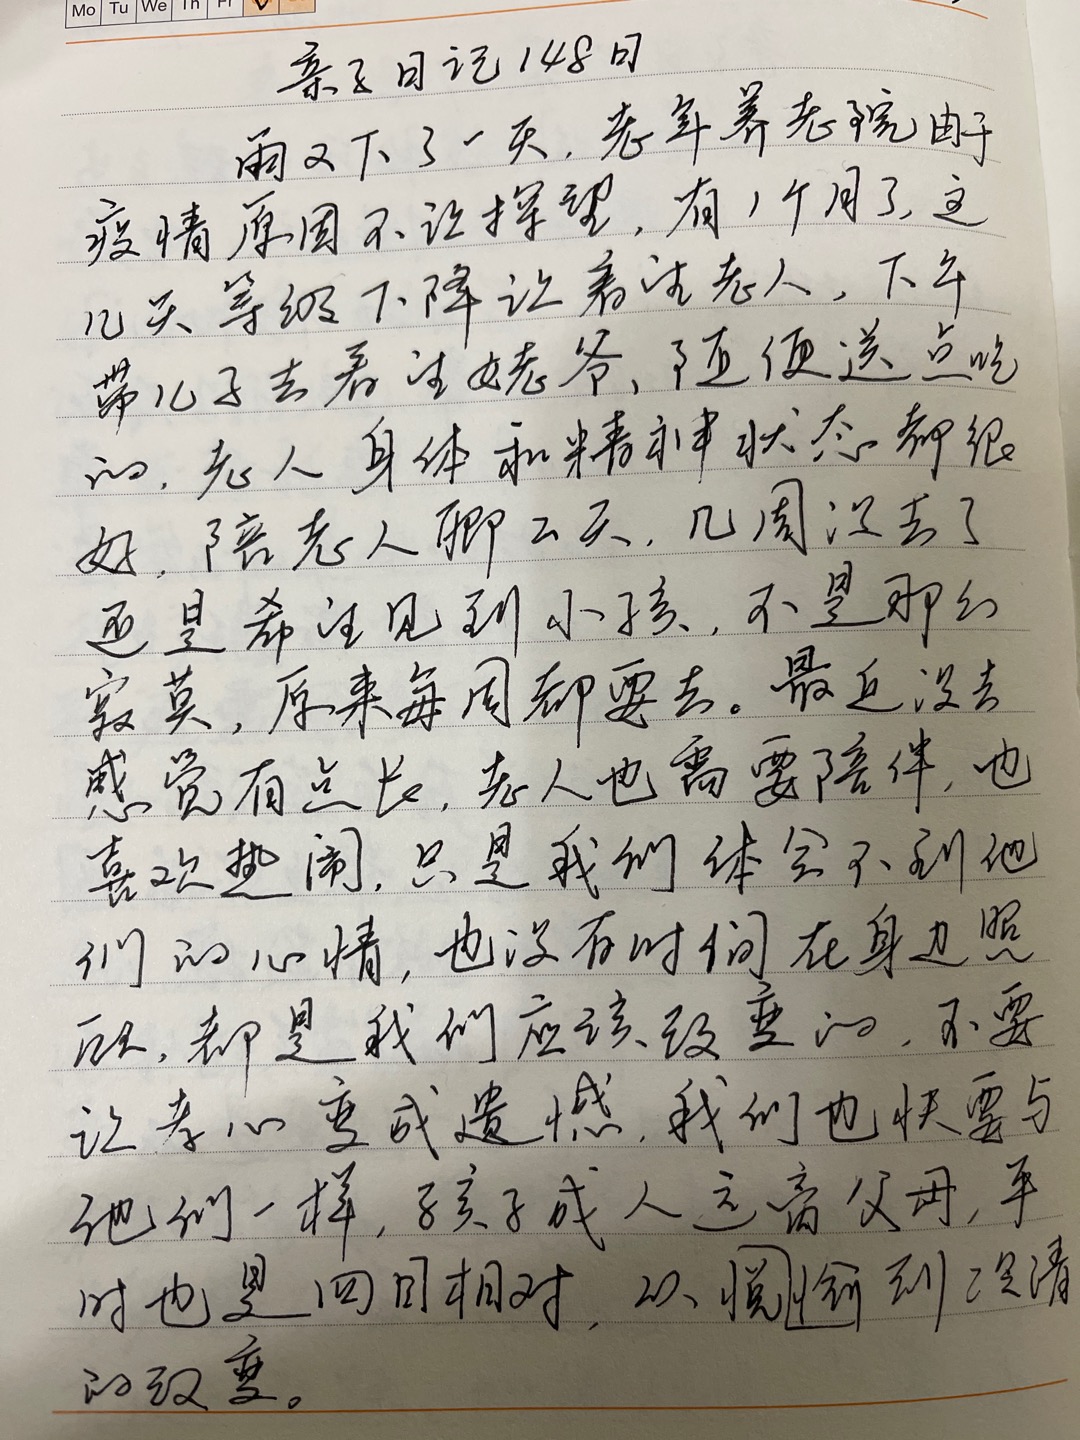 Mo Tu We Th Fr
亲子日记148日
雨又下了一天，老年养老院由于
疫情原因不让探望，有1个月了，这
几天等级下降让看望老人，下午
带儿子去看望姥老爷、随便送点吃
的，老人身体和精神状态都很
好，陪老人聊聊天，几周没去了
还是希望见到小孩，不是那么
寂莫，原来每周都要去。最近没去
感觉有点长，老人也需要陪伴，也
喜欢热闹，只是我们体会不到他
们的心情，也没有时间在身边照
顾，都是我们应该改变的，不要
让孝心变成遗憾，我们也快要与
他们一样，孩子成人远离父母，平
时也是四目相对，从愉到冷清
的改变。